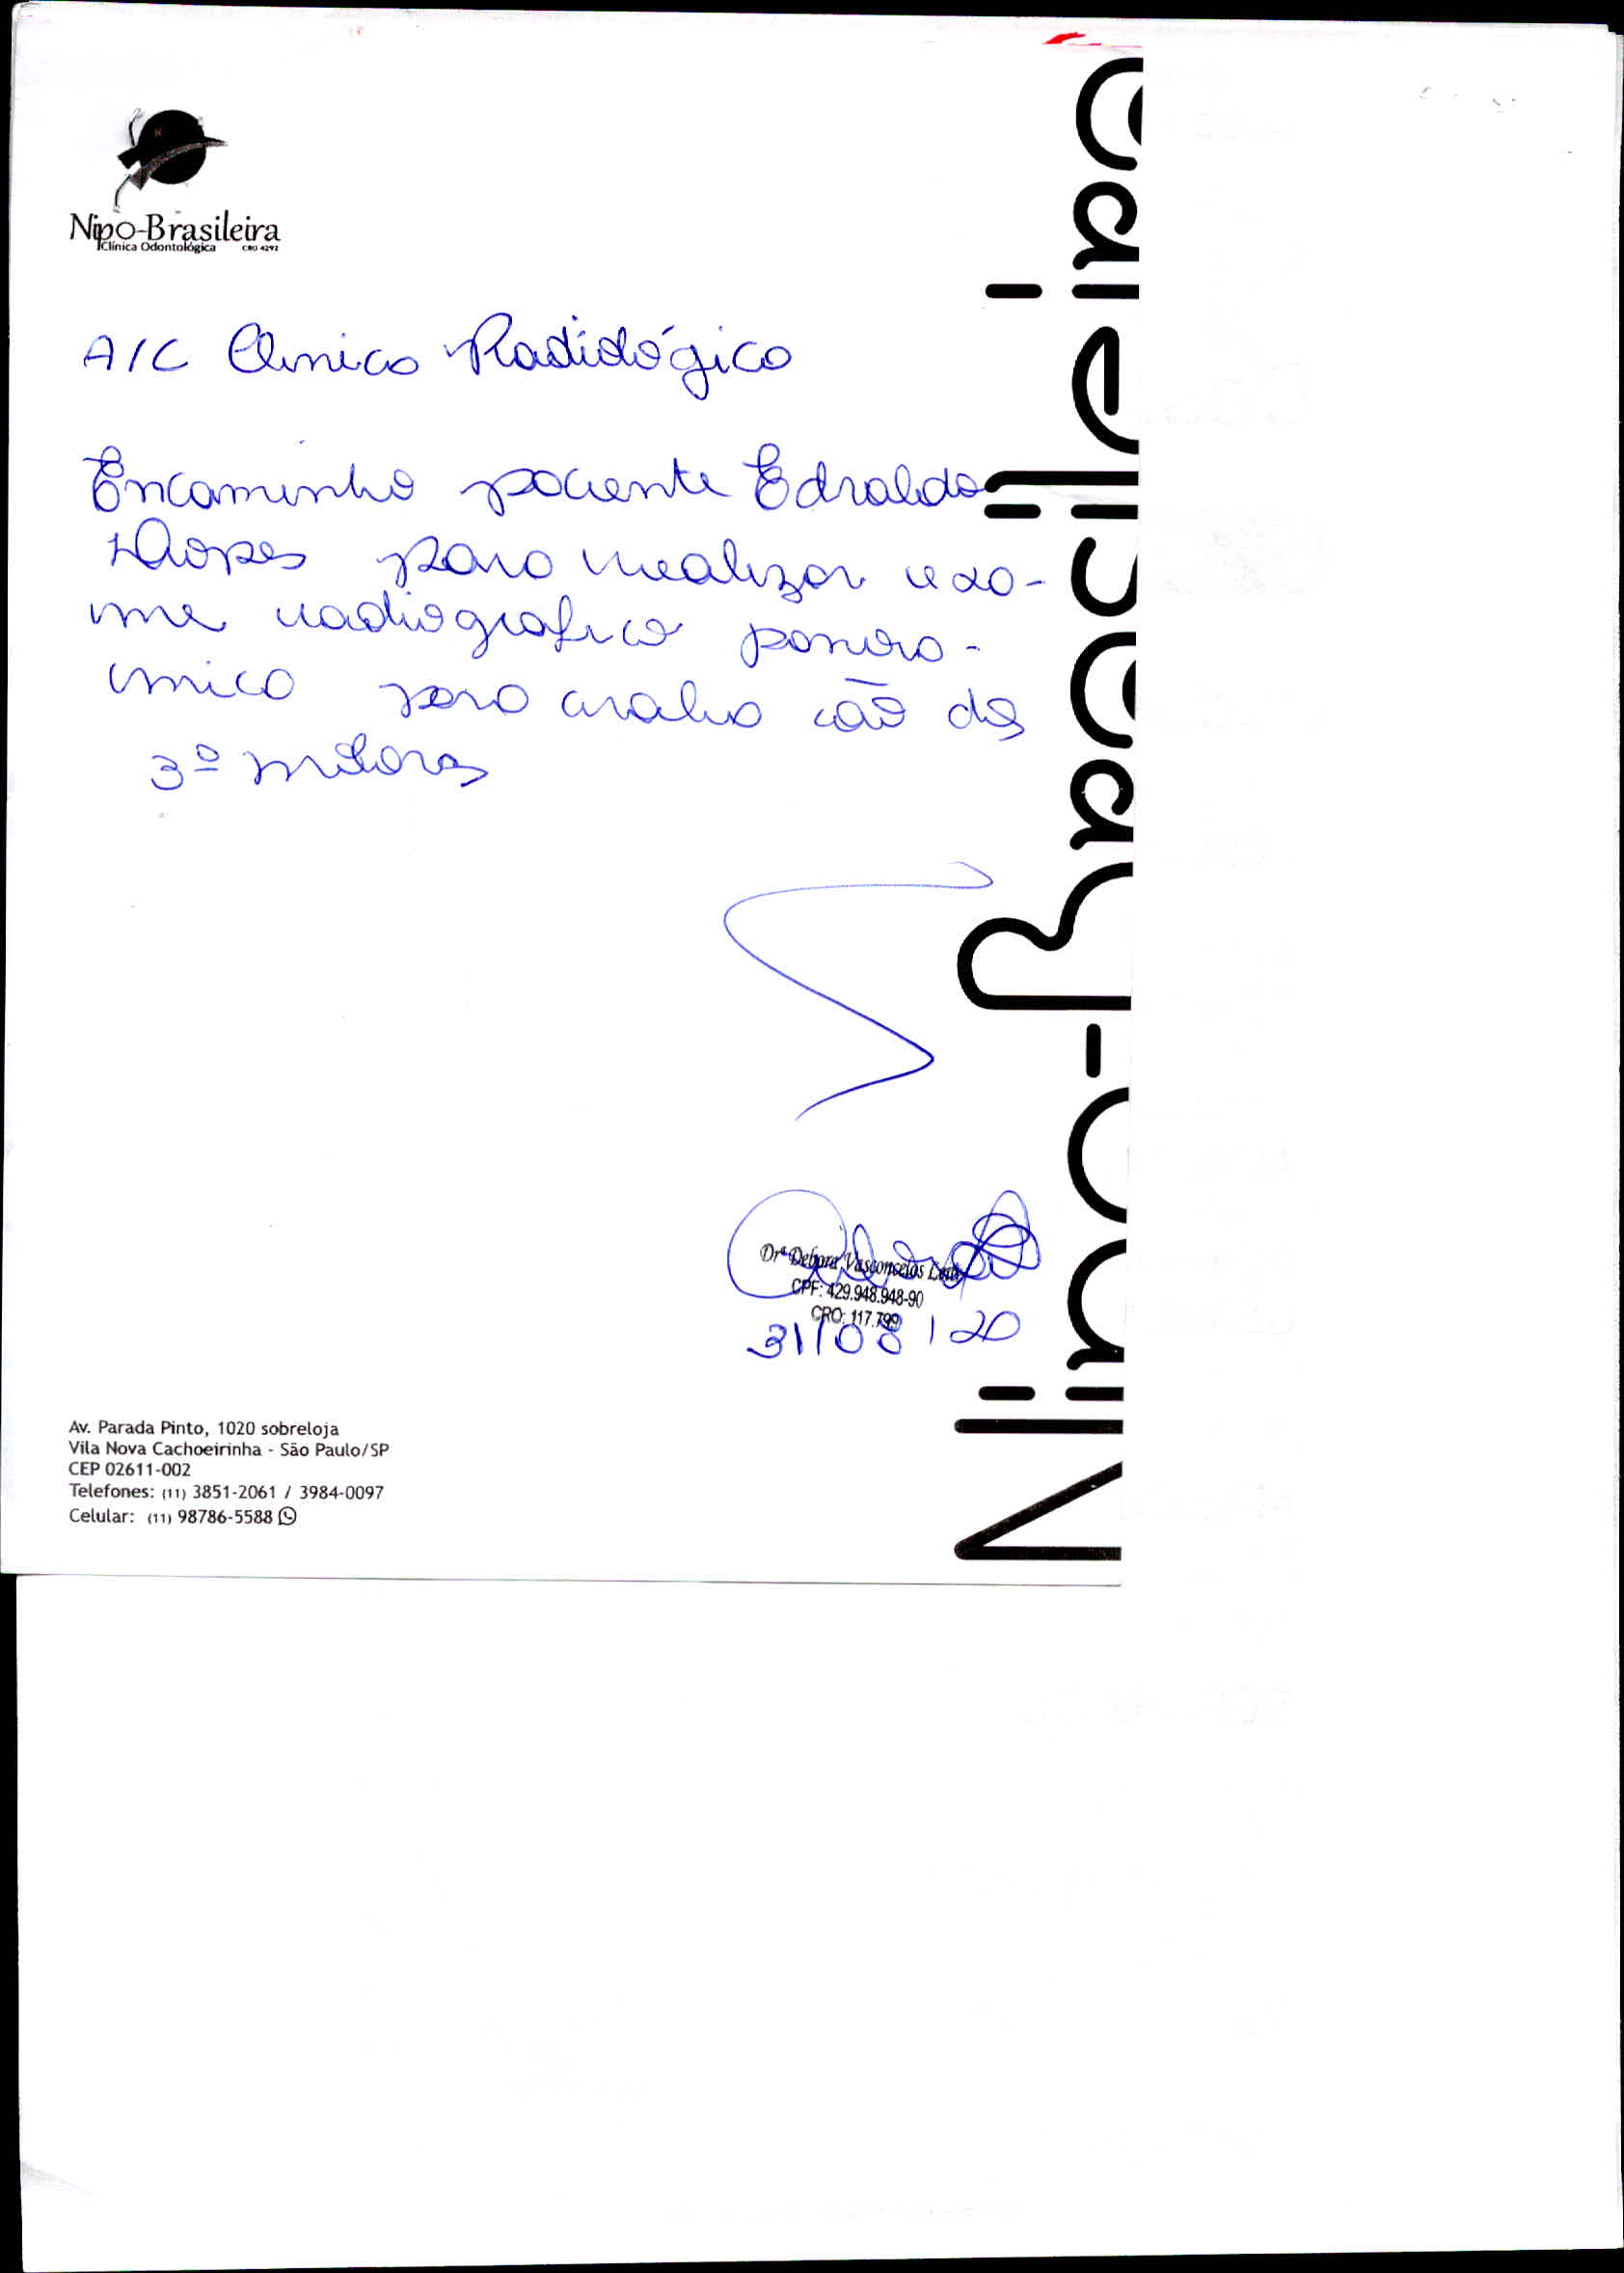 Nipo-Brasileira
Clínica Odontológica CRO 4292
A/C Clinica Radiológica
Encaminho paciente Edvaldo
Lopes para realizar exa-
me radiografico panora-
mico para avalia cão dos
3º molares
Drª Debora Vasconcelos
CPF: 429.948.948-90
CRO: 117.799
31/08/20
Av. Parada Pinto, 1020 sobreloja
Vila Nova Cachoeirinha - São Paulo/SP
CEP 02611-002
Telefones: (11) 3851-2061 / 3984-0097
Celular: (11) 98786-5588
Nipo-Brasileira